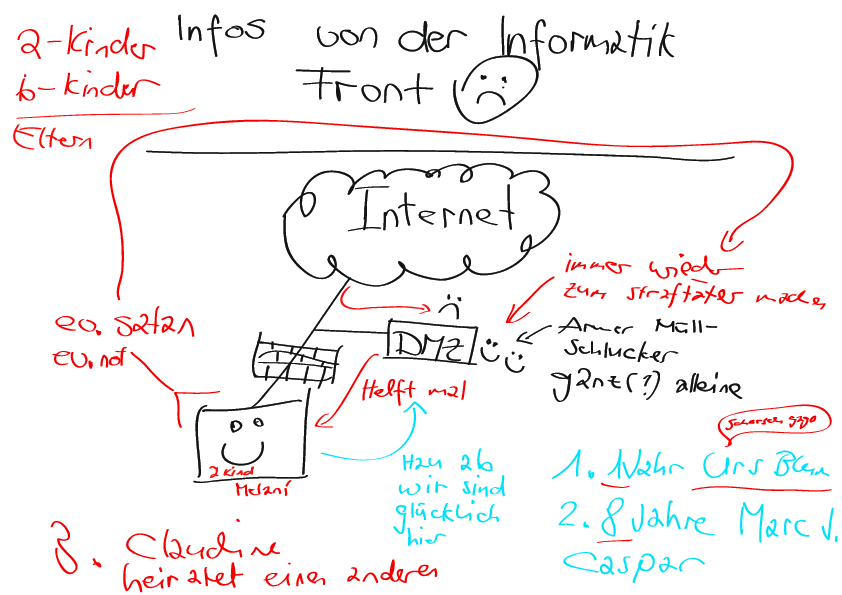 2-Kinder
b-Kinder
Eltern
Infos von der Informatik
Front
Internet
immer wieder
zum straftäter machen
ev. satan
ev. not
DMZ
Armer Müll-
schlucker
ganz(?) alleine
Helft mal
2 Kind
Melani
Hau ab
wir sind
glücklich
hier
1. 1 Jahr Urs
2. 8 Jahre Marc J.
Caspar
3. Claudine
heiratet einen anderen